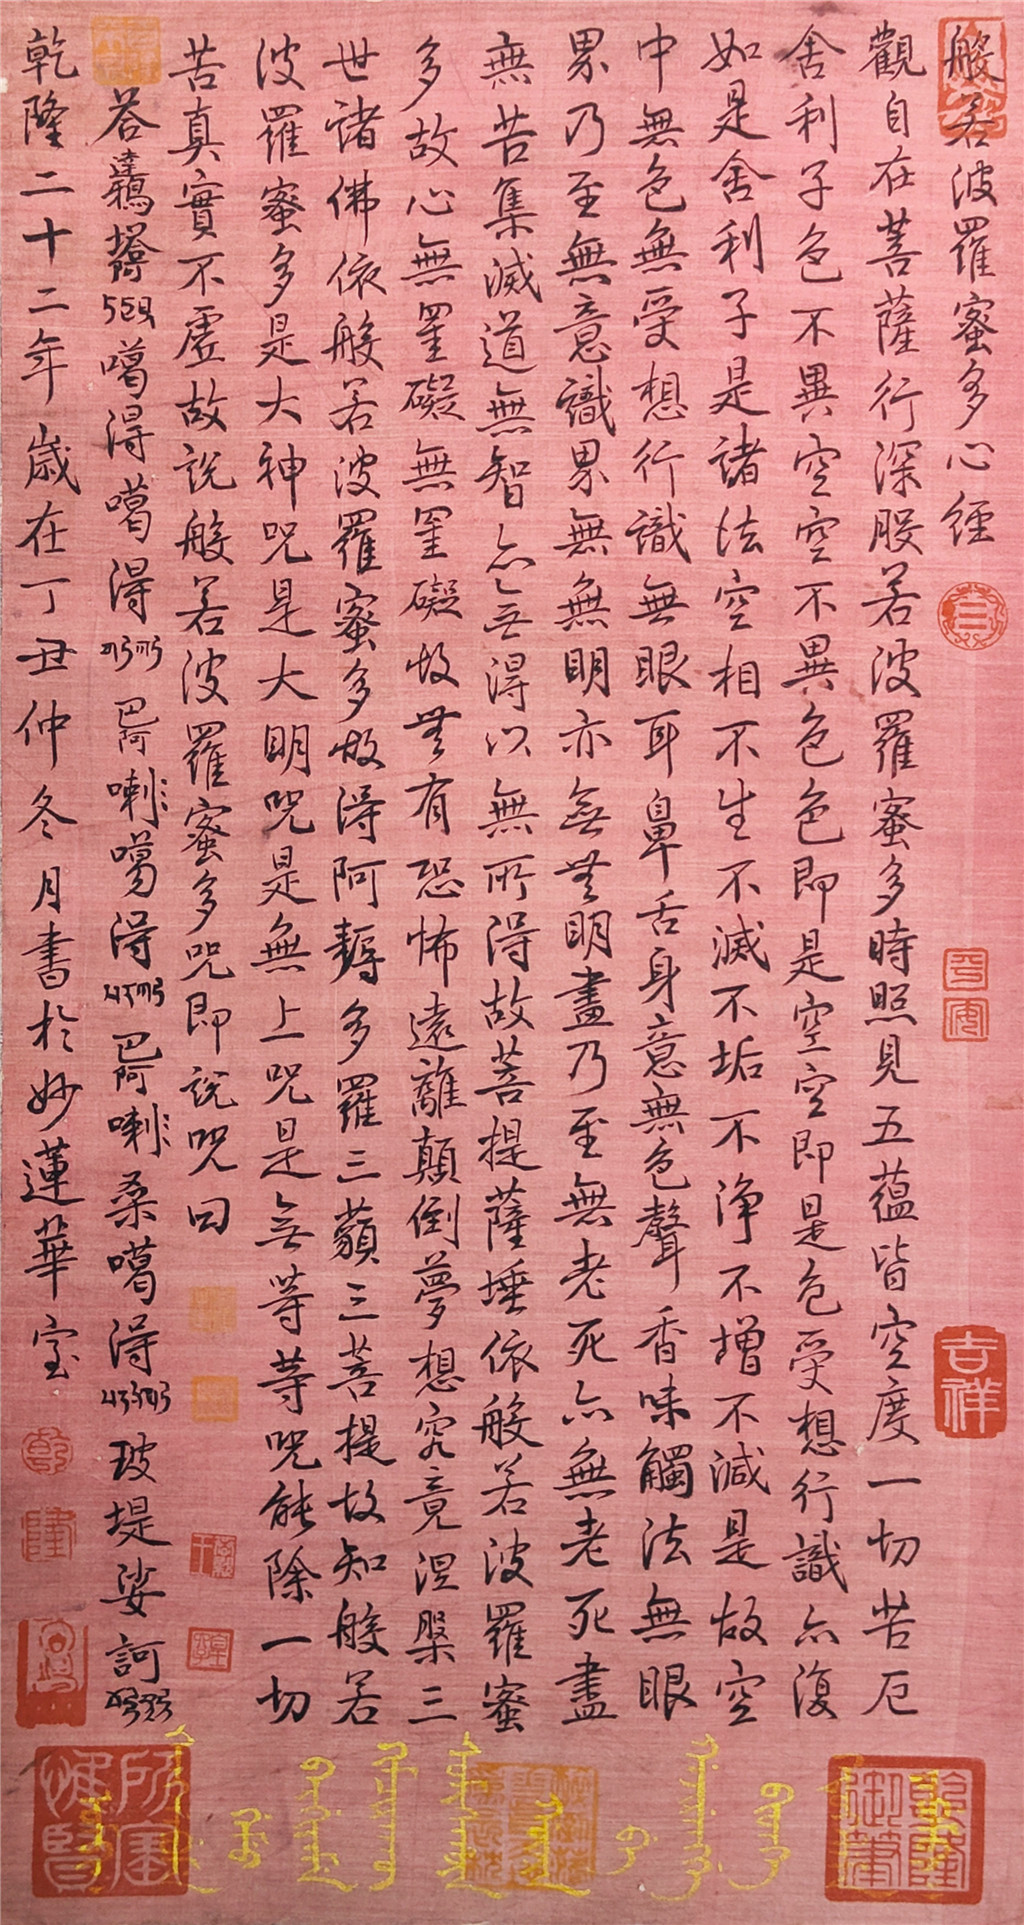 般若波羅蜜多心經
觀自在菩薩行深般若波羅蜜多時照見五蘊皆空度一切苦厄
舍利子色不異空空不異色色即是空空即是色受想行識亦復
如是舍利子是諸法空相不生不滅不垢不淨不增不減是故空
中無色無受想行識無眼耳鼻舌身意無色聲香味觸法無眼
界乃至無意識界無無明亦無無明盡乃至無老死亦無老死盡
無苦集滅道無智亦無得以無所得故菩提薩埵依般若波羅蜜
多故心無罣礙無罣礙故無有恐怖遠離顛倒夢想究竟涅槃三
世諸佛依般若波羅蜜多故得阿耨多羅三藐三菩提故知般若
波羅蜜多是大神呪是大明呪是無上呪是無等等呪能除一切
苦真實不虛故說般若波羅蜜多呪即說呪曰
答達鴉塔阿噶得噶得巴阿喇噶得巴阿喇桑噶得玻堤娑訶
乾隆二十二年歲在丁丑仲冬月書於妙蓮華室
吉祥
乾
隆
乾隆御筆
所寶惟賢